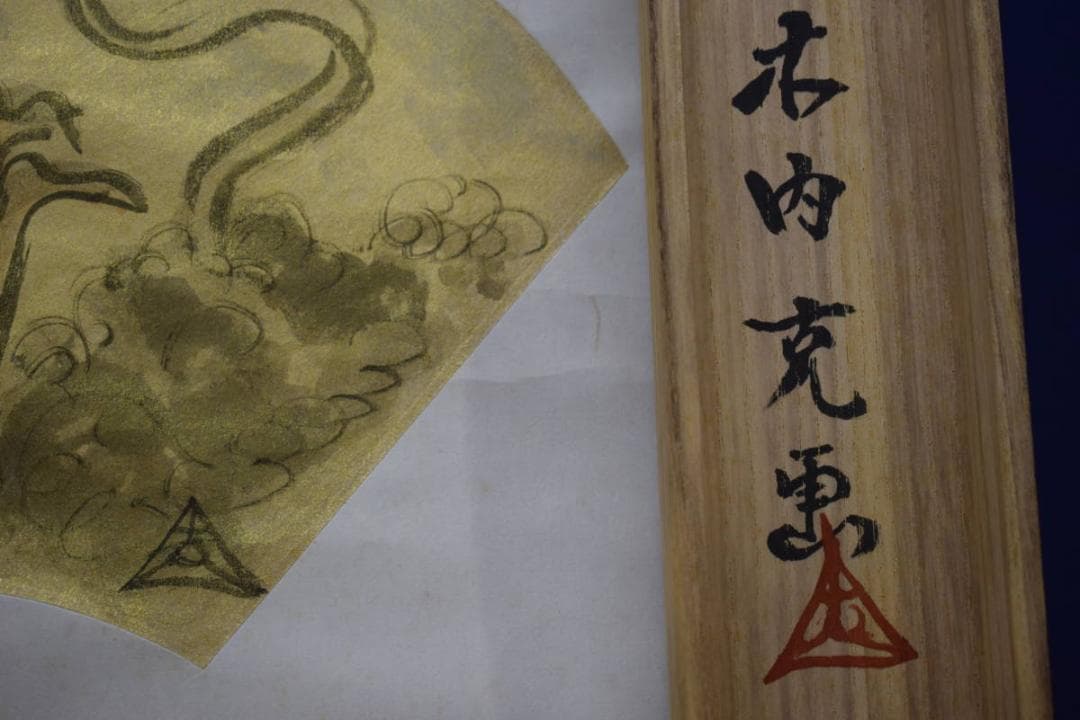 木内克画